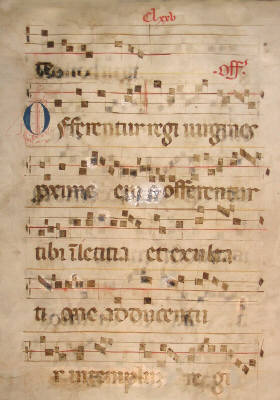 Clxxv
Off.
Offerentur regi uirgines
proxime eius offerentur
tibi i̅ letitia et exulta
ti one ad ducentu
r in templum re gi